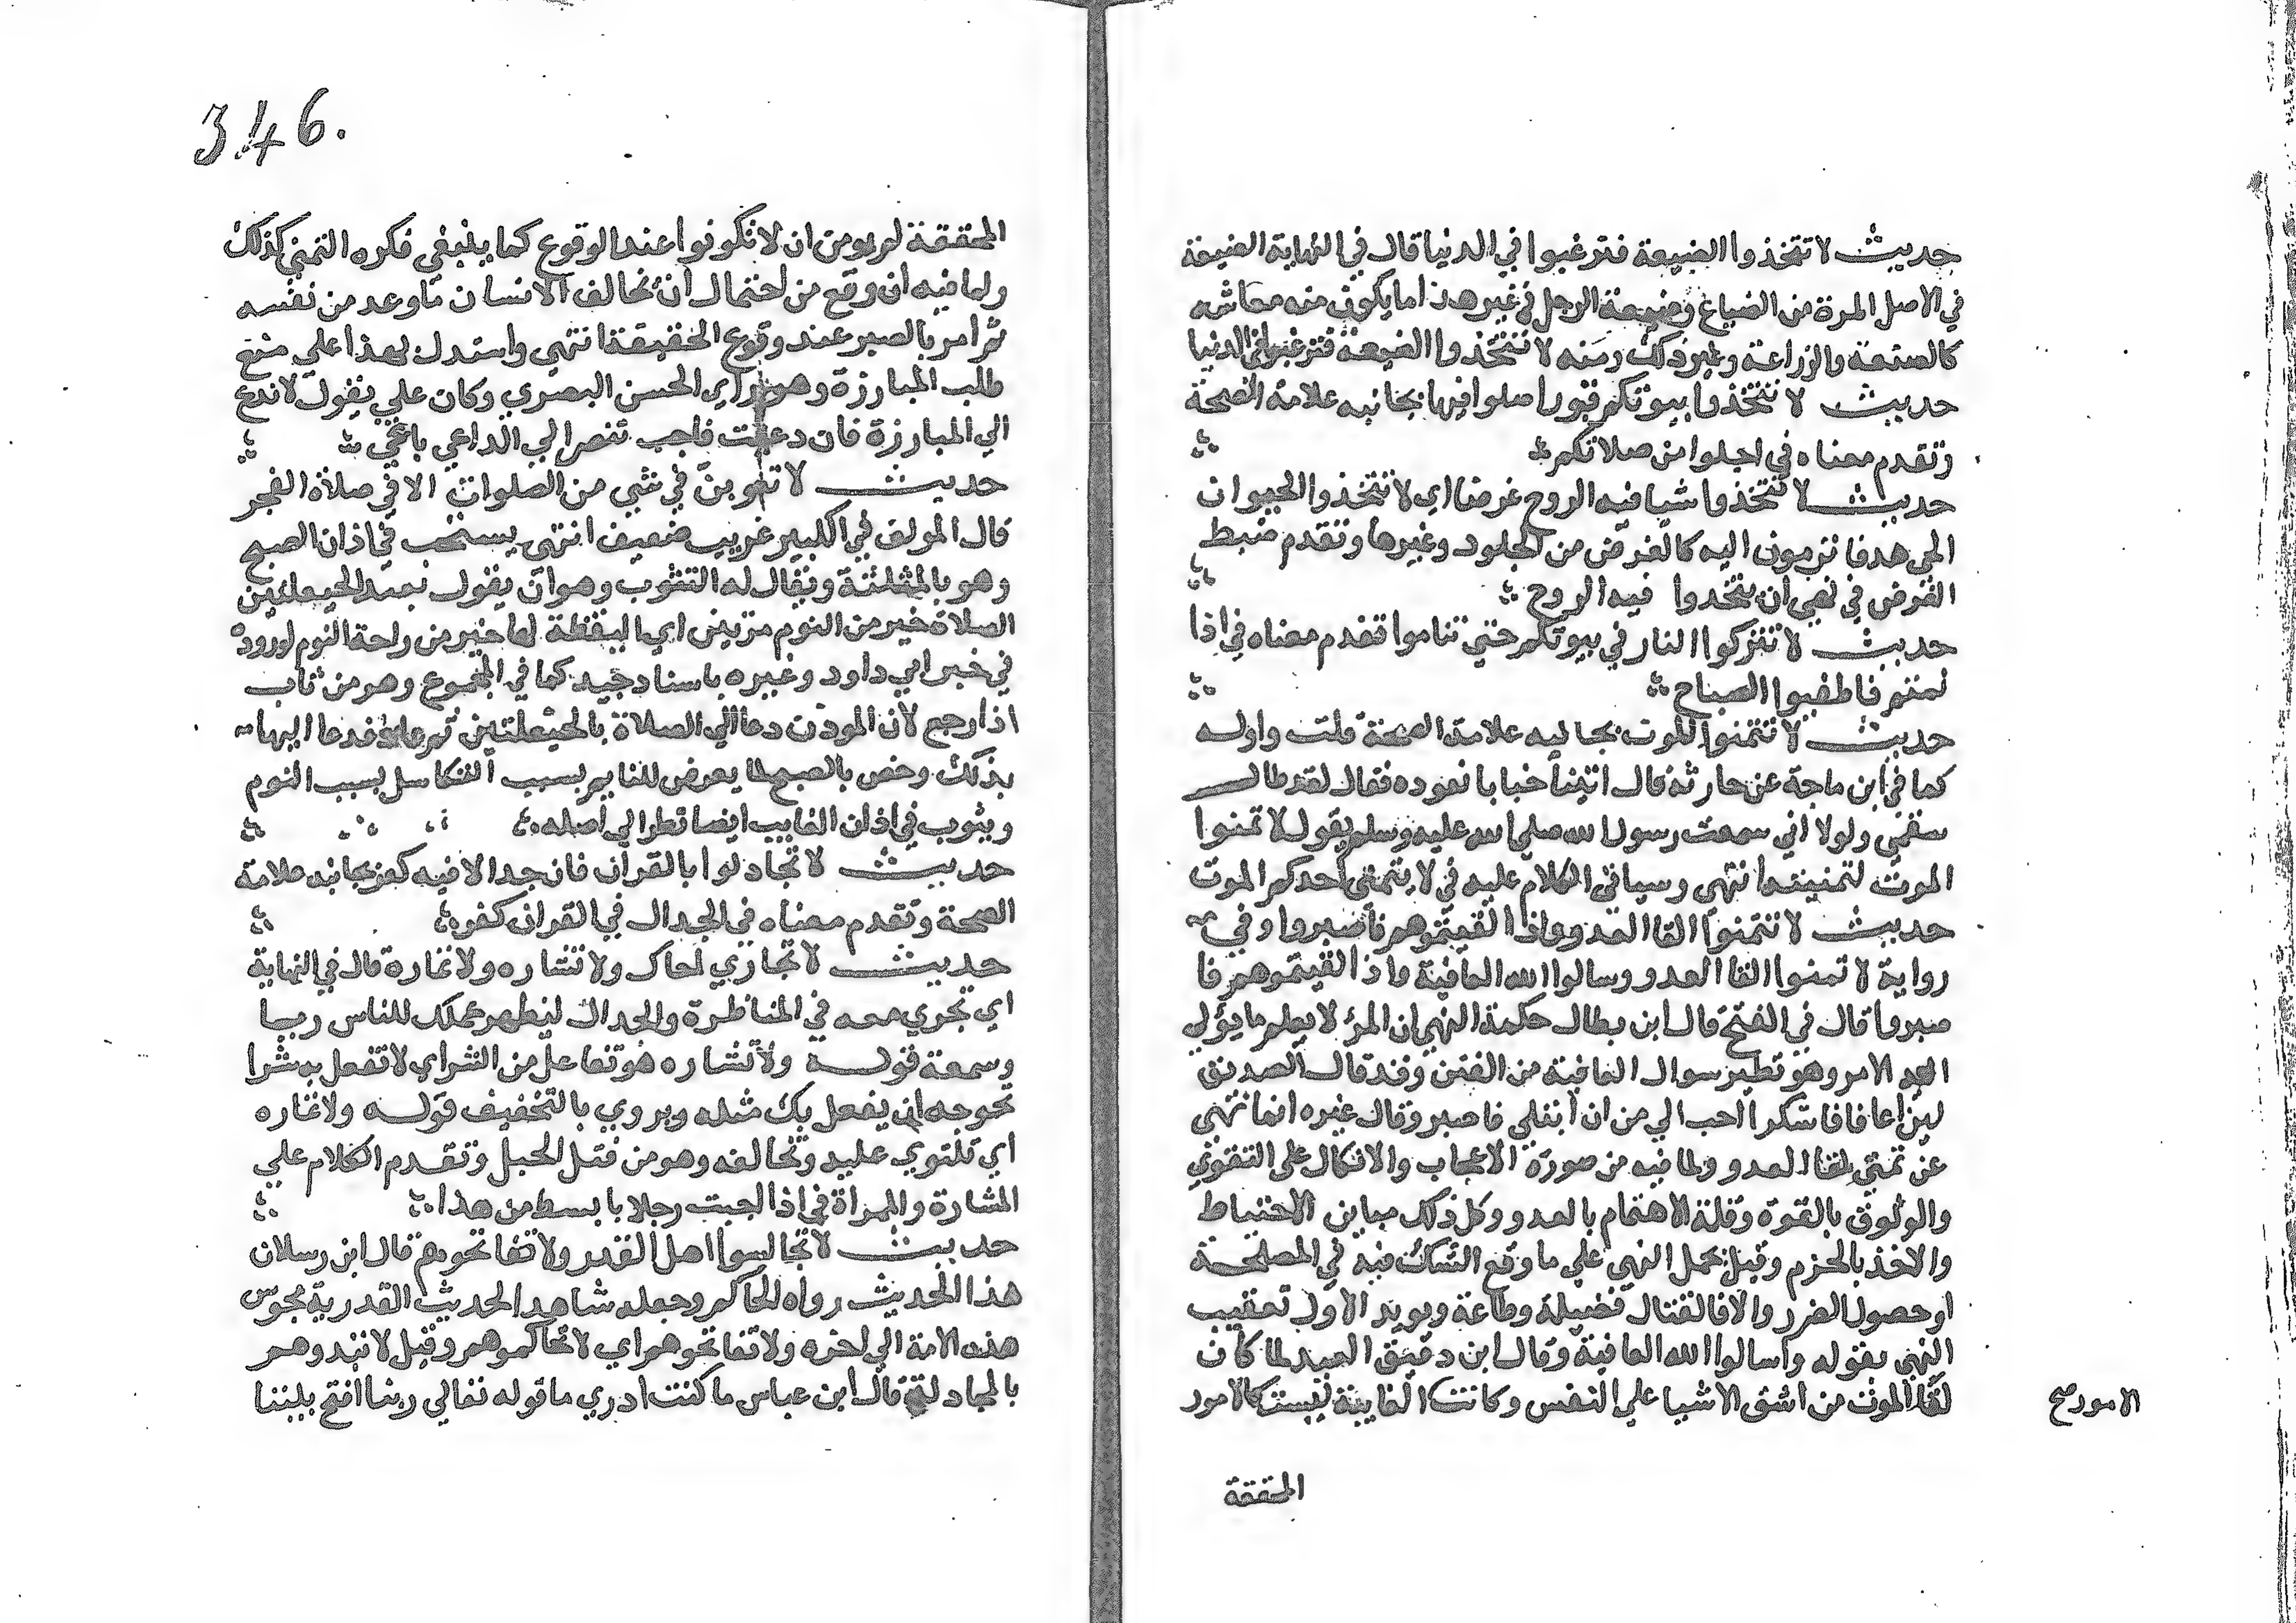 حديث لا تتخذوا الضيعة فترغبوا في الدنيا قال في النهاية الضيعة
في الاصل المرة من الضياع وضيعة الرجل في غير هذا ما يكون منه معاشه
كالصنعة والزراعة وغير ذلك ومنه لا تتخذوا الضيعة فترغبوا في الدنيا
حديث لا تتخذوا بيوتكم قبورا صلوا فيها بجانبه علامة الصحة
وتقدم معناه في اجلوا من صلاتكم
حديث لا تتخذوا شيا فيه الروح غرضا اي لا تتخذوا الحيوان
الحي هدفا ترمون اليه كالغرض من الجلود وغيرها وتقدم ضبط
الغرض في نهي ان يتخذوا فيه الروح
حديث لا تتركوا النار في بيوتكم حتي تناموا تقدم معناه في اذا
نمتم فاطفيوا المصباح
حديث لا تتمنوا الموت بجانبه علامة الصحة قلت واوله
كما في ابن ماجة عن حارثة قال اتينا خبابا نعوده فقال لقد طال
سقمي ولولا اني سمعت رسول الله صلي الله عليه وسلم يقول لا تمنوا
الموت لتمنيته انتهي وسياتي الكلام عليه في لا يتمني احدكم الموت
حديث لا تتمنوا لقا العدو واذا لقيتموهم فاصبروا وفي
رواية لا تمنوا لقا العدو وسالوا الله العافية واذا لقيتموهم فا
صبروا قال في الفتح قال ابن بطال حكمة النهي ان المرؤ لا يعلم ما يؤل
اليه الامر وهو نظير سوال العافية من الفتن وقد قال الصديق
لين اعافا فاشكر احب الي من ان ابتلي فاصبر وقال غيره انما نهي
عن تمني لقا العدو ولما فيه من صورة الاعجاب والاتكال علي التقوي
والوثوق بالقوة وقلة الاهتمام بالعدو وكل ذلك مباين الاحتياط
والاخذ بالحزم وقيل يحمل النهي علي ما وقع الشك فيه في المصلحة
او حصول الضرر والا فالقتال فضيلة وطاعة ويويد الاول تعقيب
النهي بقوله واسالوا الله العافية وقال ابن دقيق العيد لما كان
لقا الموت من اشق الاشيا علي النفس وكانت الغايبة ليست كالامور
الامور صح
المحققة
346.
المحققة لم يومن ان لا تكونوا عند الوقوع كما ينبغي فكره التمني كذلك
ولما فيه ان وقع من احتمال ان يخالف الانسان ما وعد من نفسه
ثم امر بالصبر عند وقوع الحقيقة انتهي واستدل بهذا علي منع
طلب المبارزة وهو راي الحسن البصري وكان علي يقول لا تدع
الي المبارزة فان دعيت فاجب تنصر لان الداعي باغي
حديث لا تثوبن في شي من الصلوات الا في صلاة الفجر
قال المولف في الكبير غريب ضعيف انتهي يستحب في اذان الصبح
وهو بالمثلثة ويقال له التثوب وهو ان يقول بعد الحيعلتين
الصلاة خير من النوم مرتين اي اليقظة لها خير من راحة النوم لوروده
في خبر ابي داود وغيره باسناد جيد كما في المجموع وهو من ثاب
اذا رجع لان الموذن دعا الي الصلاة بالحيعلتين ثم عاد فدعا اليها
بذلك وخص بالصبح لما يعرض للنايم بسبب التكاسل بسبب النوم
ويثوب في اذان الغايب ايضا نظرا الي اصله
حديث لا تجادلوا بالقران فان جدالا فيه كفر بجانبه علامة
الصحة وتقدم معناه في الجدال في القران كفر
حديث لا تجاري اخاك ولا تشاره ولا تماره قال في النهاية
اي تجري معه في المناظرة والجدال ليظهر عملك للناس ريا
وسمعة قوله ولا تشاره هو تفاعل من الشر اي لا تفعل به شرا
تحوجه ان يفعل بك مثله ويروي بالتخفيف قوله ولا تماره
اي تلتوي عليه وتخالفه وهو من فتل الحبل وتقدم الكلام علي
المشارة والمراة في اذا احببت رجلا بابسط من هذا
حديث لا تجالسوا اهل القدر ولا تفاتحوهم قال ابن رسلان
هذا الحديث رواه الحاكم وجعله شاهد الحديث القدرية مجوس
هذه الامة الي اخره ولا تفاتحوهم اي لا تحاكموهم وقيل لا تبدوهم
بالمجادلة قال ابن عباس ما كنت ادري ما قوله تعالي ربنا افتح بيننا